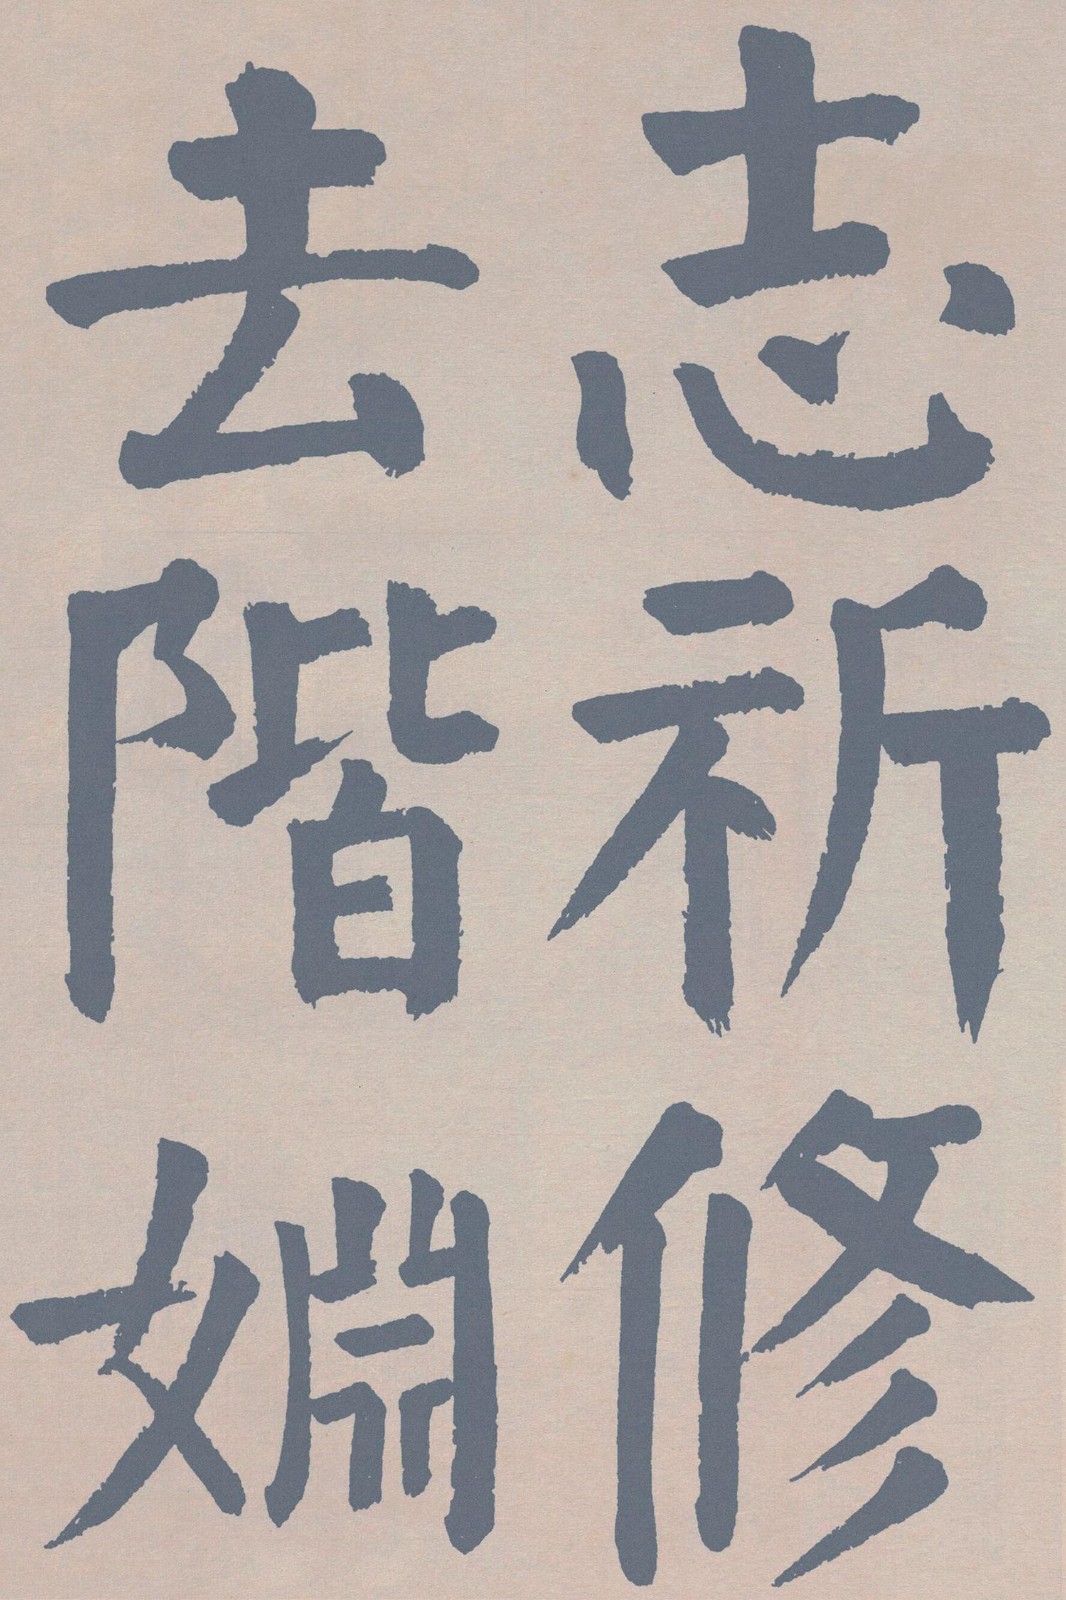 志祈修
去階婣